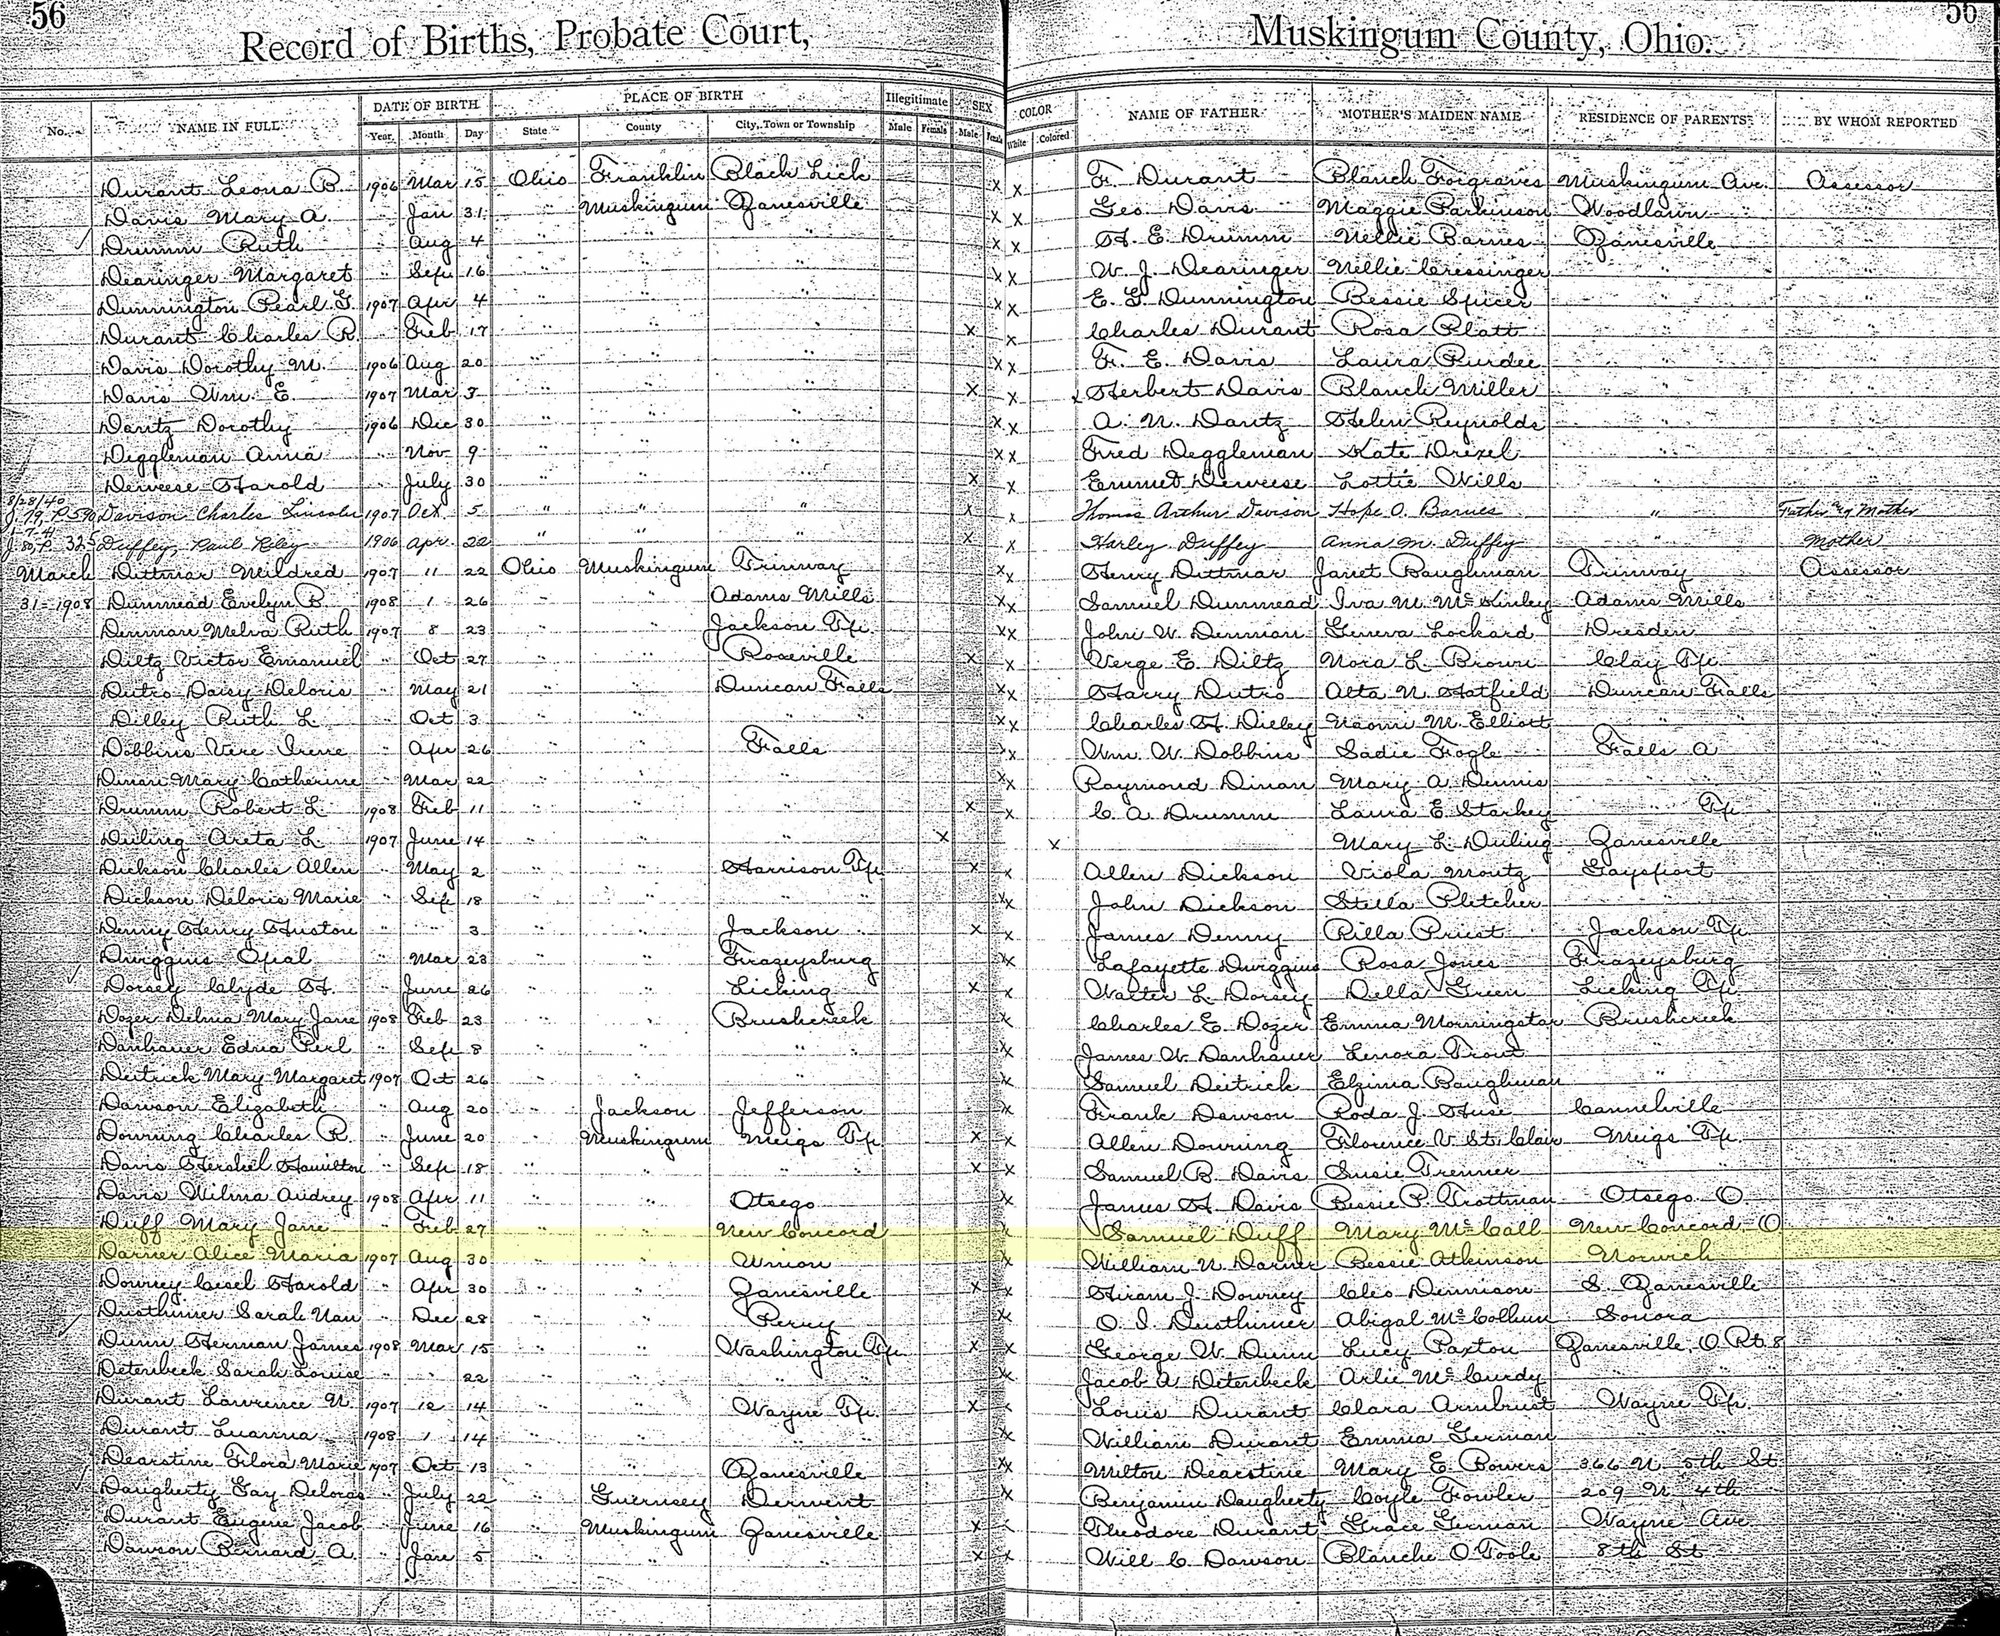 56 56
Record of Births, Probate Court, Muskingum County, Ohio.
No. NAME IN FULL DATE OF BIRTH PLACE OF BIRTH Illegitimate SEX COLOR NAME OF FATHER MOTHER'S MAIDEN NAME RESIDENCE OF PARENTS BY WHOM REPORTED
Year Month Day State County City, Town or Township Male Female Male Female White Colored
Durant Leona B. 1906 Mar 15 Ohio Franklin Black Lick x x F. Durant Blanch Forgraves Muskingum Ave. Assessor
Davis Mary A. " Jan 31 " Muskingum Zanesville x x Geo. Davis Maggie Parkinson Woodlawn "
Drumm Ruth " Aug 4 " " " x x H. E. Drumm Nellie Barnes Zanesville "
Dearinger Margaret " Sep 16 " " " x x W. J. Dearinger Nellie Cressinger " "
Dunnington Pearl G. 1907 Apr 4 " " " x x E. G. Dunnington Bessie Spicer " "
Durant Charles R. " Feb 17 " " " x x Charles Durant Rosa Platt " "
Davis Dorothy M. 1906 Aug 20 " " " x x F. E. Davis Laura Purdee " "
Davis Wm. E. 1907 Mar 3 " " " x x x Herbert Davis Blanch Miller " "
Dantz Dorothy 1906 Dec 30 " " " x x A. N. Dantz Helen Reynolds " "
Deggleman Anna " Nov 9 " " " x x Fred Deggleman Kate Drexel " "
Deweese Harold " July 30 " " " x x Emmet Deweese Lottie Wills " "
8/28/40
J. 79, P 590 Davison Charles Lincoln 1907 Oct 5 " " " x x Thomas Arthur Davison Hope O. Barnes " Father & Mother
J. 80, P. 325 Duffey, Paul Riley 1906 Apr. 22 " " " x x Harley Duffey Anna M. Duffey " Mother
March Dittmar Mildred 1907 11 22 Ohio Muskingum Trinway x x Henry Dittmar Janet Baughman Trinway Assessor
31-1908 Dunmead Evelyn B. 1908 1 26 " " Adams Mills x x Samuel Dunmead Iva M. McKinley Adams Mills "
Denman Melva Ruth 1907 8 23 " " Jackson Tp. x x John W. Denman Geneva Lockard Dresden "
Diltz Victor Emanuel " Oct 27 " " Roseville x x Verge E. Diltz Nora L. Brown Clay Tp. "
Dutro Daisy Deloris " May 21 " " Duncan Falls x x Harry Dutro Alta N. Hatfield Duncan Falls "
Dilley Ruth L. " Oct 3 " " " x x Charles H. Dilley Naomi M. Elliott " "
Dobbins Vere Irene " Apr 26 " " Falls x x Wm. W. Dobbins Sadie Fogle Falls "
Dinan Mary Catherine " Mar 22 " " " x x Raymond Dinan Mary A. Dennis " "
Drumm Robert L. 1908 Feb 11 " " " x x C. A. Drumm Laura E. Starkey " Tp. "
Duling Areta L. 1907 June 14 " " " x x Mary L. Duling Zanesville "
Dickson Charles Allen " May 2 " " Harrison Tp. x x Allen Dickson Viola Montz Gaysport "
Dickson Deloris Marie " Sep 18 " " " x x John Dickson Stella Pletcher " "
Denny Henry Huston " " 3 " " Jackson " x x James Denny Rilla Priest Jackson Tp. "
Dwiggins Opal " Mar 23 " " Frazeysburg x x Lafayette Dwiggins Rosa Jones Frazeysburg "
Dorsey Clyde H. " June 26 " " Licking x x Walter L. Dorsey Della Green Licking Tp. "
Dozer Delma Mary Jane 1908 Feb 23 " " Brushcreek x Charles E. Dozer Emma Morningstar Brushcreek "
Danhauer Edna Perl " Sep 8 " " " x James W. Danhauer Lenora Trout " "
Deitrick Mary Margaret 1907 Oct 26 " " " x Samuel Deitrick Elzina Baughman " "
Dawson Elizabeth " Aug 20 " Jackson Jefferson x Frank Dawson Roda J. Huse Cannelville "
Downing Charles R. " June 20 " Muskingum Meigs Tp. x x Allen Downing Florence V. St. Clair Meigs Tp. "
Davis Hershel Hamilton " Sep 18 " " " x x Samuel B. Davis Susie Trenner " "
Davis Wilma Audrey 1908 Apr 11 " " Otsego x James H. Davis Bessie P. Trottman Otsego O. "
Duff Mary Jane " Feb 27 " " New Concord x Samuel Duff Mary McCall New Concord, O. "
Darner Alice Maria 1907 Aug 30 " " Union x William N. Darner Bessie Atkinson Norwich "
Downey Cecel Harold " Apr 30 " " Zanesville x x Hiram J. Downey Cleo Dennison S. Zanesville "
Dusthimer Sarah Nan " Dec 28 " " Perry x O. I. Dusthimer Abigal McColhun Sonora "
Dunn Herman James 1908 Mar 15 " " Washington Tp. x x George W. Dunn Lucy Paxton Zanesville, O. Rt. 8 "
Detenbeck Sarah Louise " " 22 " " " x Jacob A. Detenbeck Arlie McCurdy " "
Durant Lawrence N. 1907 12 14 " " Wayne Tp. x x Louis Durant Clara Armbrust Wayne Tp. "
Durant Luanna 1908 1 14 " " " x William Durant Emma German " "
Dearstine Flora Marie 1907 Oct 13 " " Zanesville x x Milton Dearstine Mary E. Bowers 366 N. 5th St. "
Daugherty Gay Deloras " July 22 " Guernsey Derwent x Benjamin Daugherty Coyle Fowler 209 N. 4th "
Durant Eugene Jacob " June 16 " Muskingum Zanesville x x Theodore Durant Grace German Wayne Ave. "
Dawson Bernard A. " Jan 5 " " " x x Will C. Dawson Blanche O'Toole 8th St. "